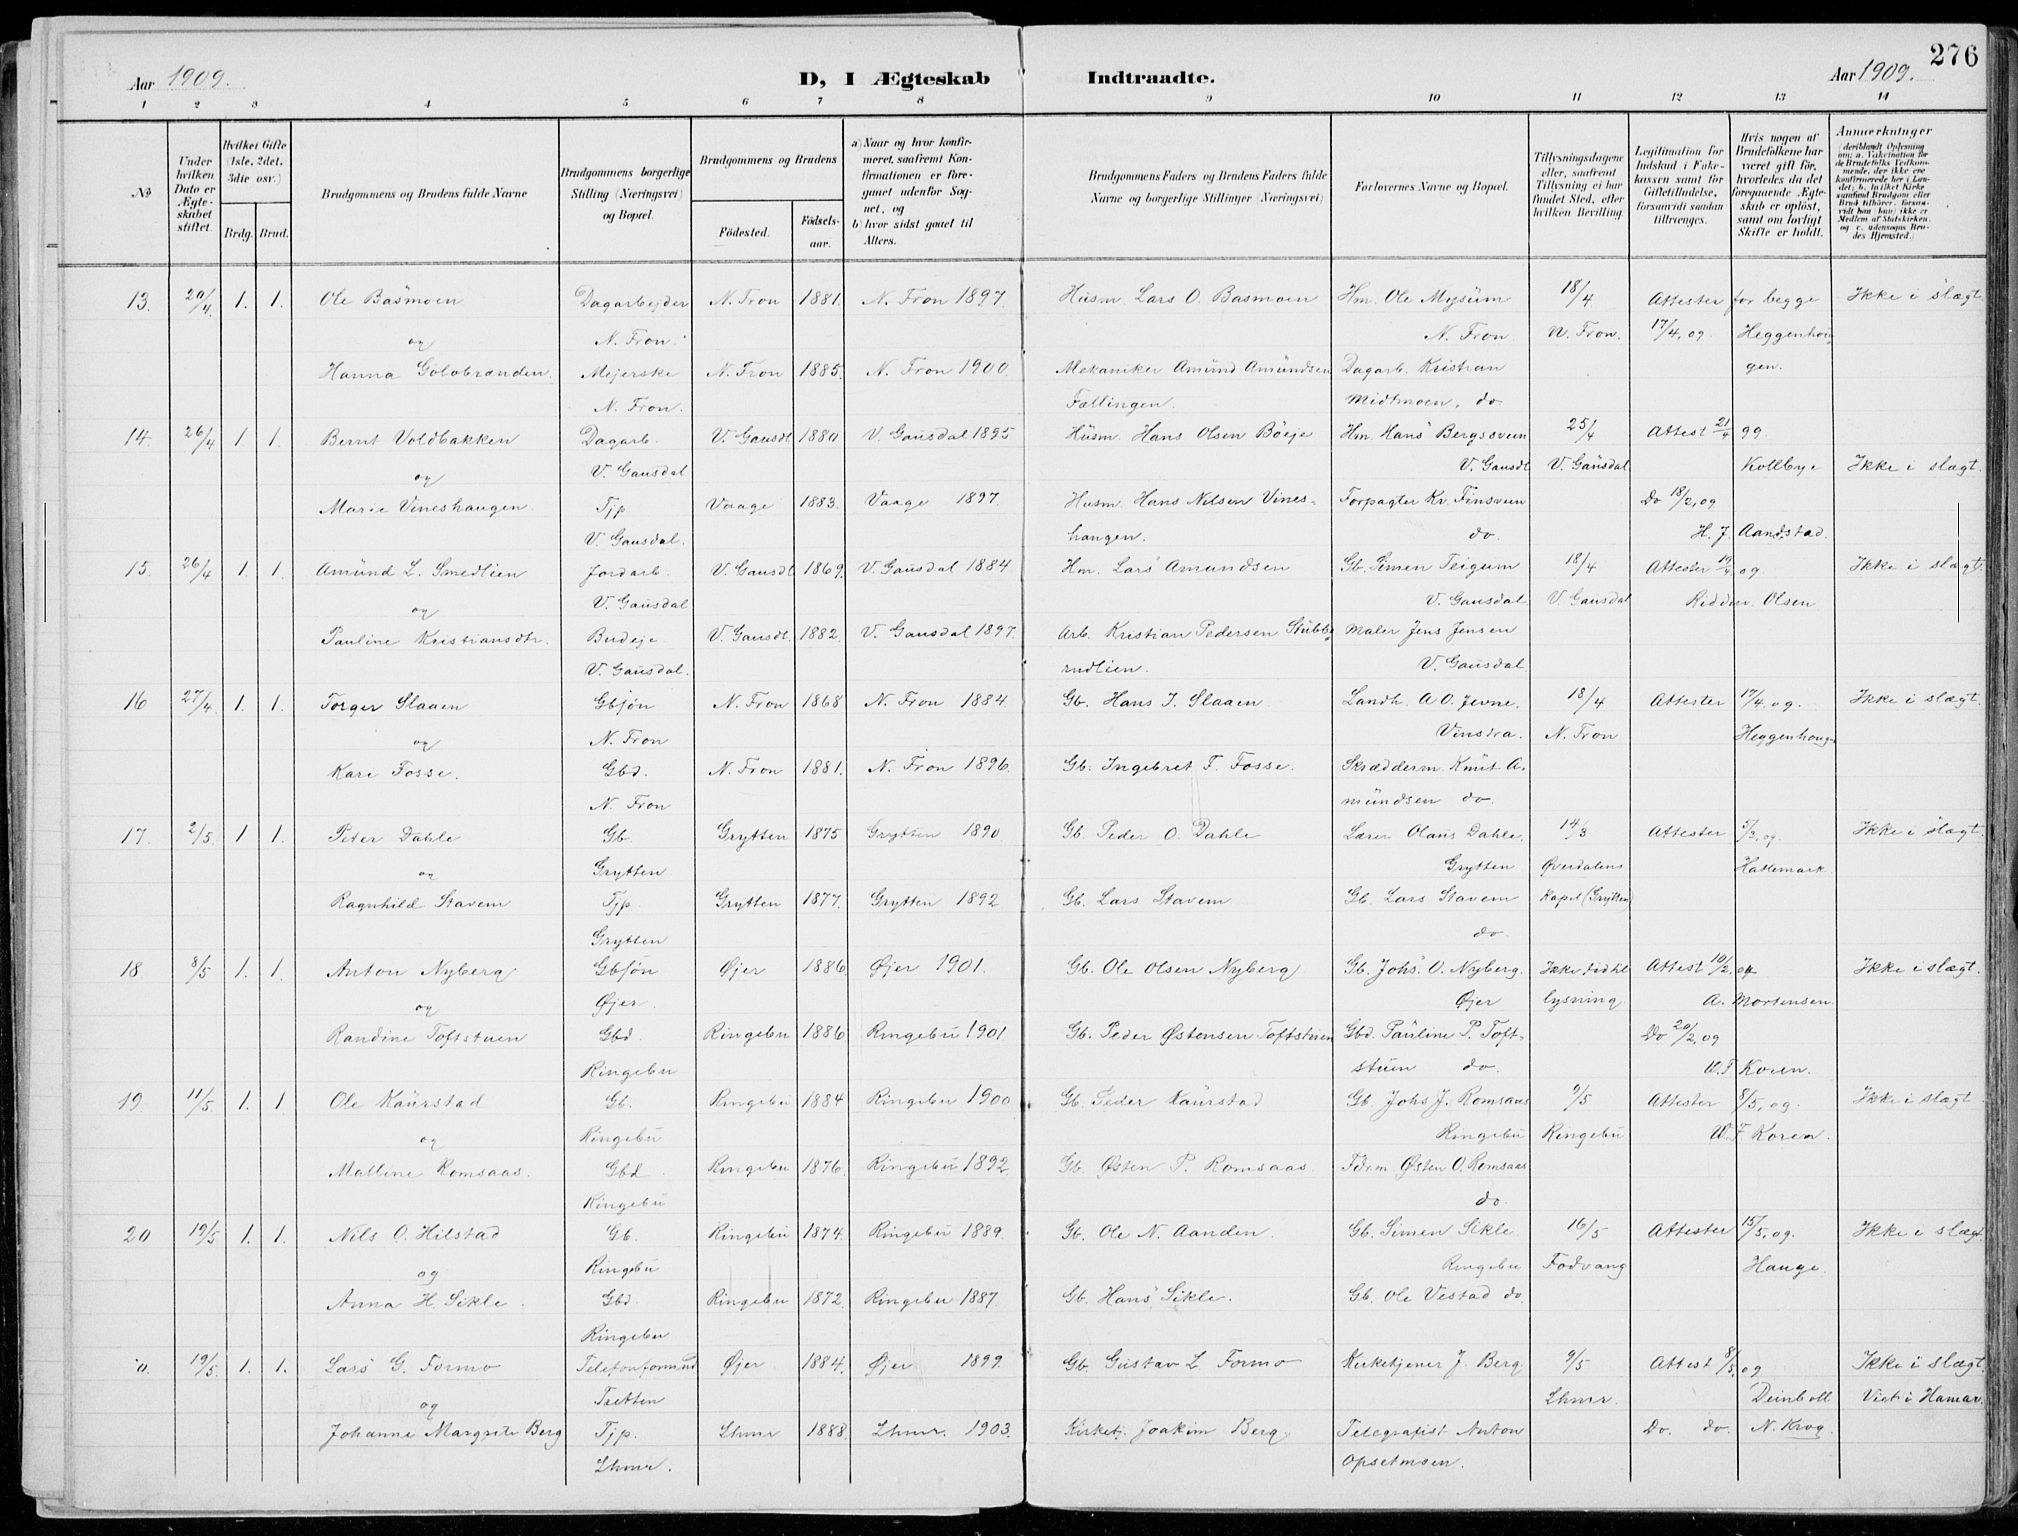 276
Aar 1909. D, I Ægteskab Indtraadte. Aar 1909.
1 2 3 4 5 6 7 8 9 10 11 12 13 14
No
Under hvilken Dato er Ægteskabet stiftet.
Hvilket Gifte (1ste, 2det, 3die osv.)
Brdg. Brud.
Brudgommens og Brudens fulde Navne
Brudgommens borgerlige Stilling (Næringsvei) og Bopæl.
Brudgommens og Brudens
Fødested. Fødselsaar.
a) Naar og hvor konfirmeret, saafremt Konfirmationen er foregaaet udenfor Sognet, og
b) hvor sidst gaaet til Alters.
Brudgommens Faders og Brudens Faders fulde Navne og borgerlige Stillinger (Næringsvei)
Forlovernes Navne og Bopæl.
Tillysningsdagene eller, saafremt Tillysning ei har fundet Sted, efter hvilken Bevilling.
Legitimation for Indskud i Enkekassen samt for Giftetilladelse, forsaavidt saadan tiltrænges.
Hvis nogen af Brudefolkene har været gift før, hvorledes da det foregaaende Ægteskab er opløst, samt om lovligt Skifte er holdt.
Anmerkninger
13. 20/4 1. 1. Ole Basmoen Dagarbejder N. Fron 1881. N. Fron 1897. Husm. Lars O. Basmoen Hm. Ole Mysüm 18/4 Attester for begge Ikke i slægt.
og N. Fron. N. Fron N. Fron. 17/4, og. Heggenhou
Hanna Golobranden. Mejerske N. Fron 1885. N. Fron 1900. Mekaniker Amünd Amündsen Dagarb. Kristian gen.
N. Fron. Fællingen. Midtmoen, do.
14. 26/4 1 1. Bernt Voldbakken Dagarb. V. Gausdl 1880 V. Gausdal 1895 Hüsm. Hans Olsen Böeje Hm. Hans Bergsveen 25/4 Attest 21/4 99.
og V. Gausdal V. Gausdl V. Gausdal Kollbye Ikke i slægt.
Marie Vineshaugen. Tjp Vaage 1883. Vaage 1897. Husm. Hans Nilsen Vines- Forpagter Kr. Finsveen Do 18/2, og
V. Gausdal. haugen. do. H. J. Aandstad.
15. 26/4 1. 1. Amünd L. Smedlien Jordarb. V. Gausdl 1869. V. Gausdal 1884 Hm. Lars Amundsen Gb. Simen Teigum 18/4 Attester 19/4 og Ikke i slægt.
og V. Gausdal V. Gausdal. V. Gausdal Ridder Olsen
Pauline Kristiansdtr. Budeje. V. Gausdl. 1882. V. Gausdal 1897. Arb. Kristian Pedersen Stübbe Maler Jens Jensen
V. Gausdal. rudlien. V. Gausdal
16 27/4 1. 1. Torger Slaaen Gbjön N. Fron 1868 N. Fron 1884. Gb. Hans J. Slaaen. Landh. A. O. Jevne. 18/4 Attester 17/4. og. Ikke i slægt.
og N. Fron Vinstra. N. Fron Heggenhoug-
Kari Fosse. Gbd. N. Fron 1881. N. Fron 1896. Gb. Ingebret F. Fosse. Skrædderm. Knut A.
N. Fron mündsen do.
17. 2/5. 1 1. Peder Dahle Gb. Grytten 1875 Grytten 1890 Gb. Peder O. Dahle Lærer Olaus Dahle. 14/3 Attester 5/3, og. Ikke i slægt.
og Grytten Grytten Øverdalens Hattemark
Ragnhild Stavem Tjp. Grytten 1877. Grytten 1892 Gb. Lars Stavem Gb. Lars Stavem Kapel (Grytten)
Grytten do.
18. 8/5 1. 1. Anton Nyberg Gbsön Øjer 1886 Øjer 1901. Gb. Ole Olsen Nyberg Gb. Johs. O. Nyberg. Ikke tid til Attest 10/2, og Ikke i slægt.
og Øjer. Øjer lysning. A. Mortensen.
Randine Toftstuen Gbd. Ringebu 1886 Ringebü 1901. Gb. Peder Østensen Toftstuen Gbd. Pauline P. Toft- Do 20/2, og
Ringebu stuen do. W. F. Koren.
19. 11/5. 1. 1. Ole Kaürstad Gb. Ringebu 1884 Ringebu 1900 Gb. Peder Kaürstad Gb. Johs J. Romsaas 9/5 Attester 8/5, og. Ikke i slægt
og Ringebü Ringebü Ringebü W. F. Koren.
Mattine Romsaas. Gbd Ringebu 1876. Ringebü 1892 Gb. Østen P. Romsaas. Fdrm. Østen O. Romsaas
Ringebü do.
20 19/5 1. 1. Nils O. Hilstad Gb. Ringebü 1874. Ringebü 1889. Gb. Ole N. Aanden. Gb. Simen Sikle 16/5 Attester 15/5, og. Ikke i slægt
og Ringebü Ringebu Fodvang Hauge.
Anna H. Sikle. Gbd. Ringebu 1872. Ringebu 1887. Gb. Hans Sikle. Gb. Ole Vestad do
Ringebu
19/5. 1. 1. Lars G. Formo Telefonformand Øjer 1884. Øjer 1899. Gb. Gustav L. Formo Kirketjener J. Berg. 9/5 Attest 8/5, og Ikke i slægt
og Tretten Lhmr. Deinboll Viet i Hamar.
Johanne Margrete Berg Tjp. Lhmr 1888. Lhmr. 1903. Kirketj. Joakim Berg. Telegrafist Anton Do. do. N. Krog.
Lhmr. Opsetmoen.